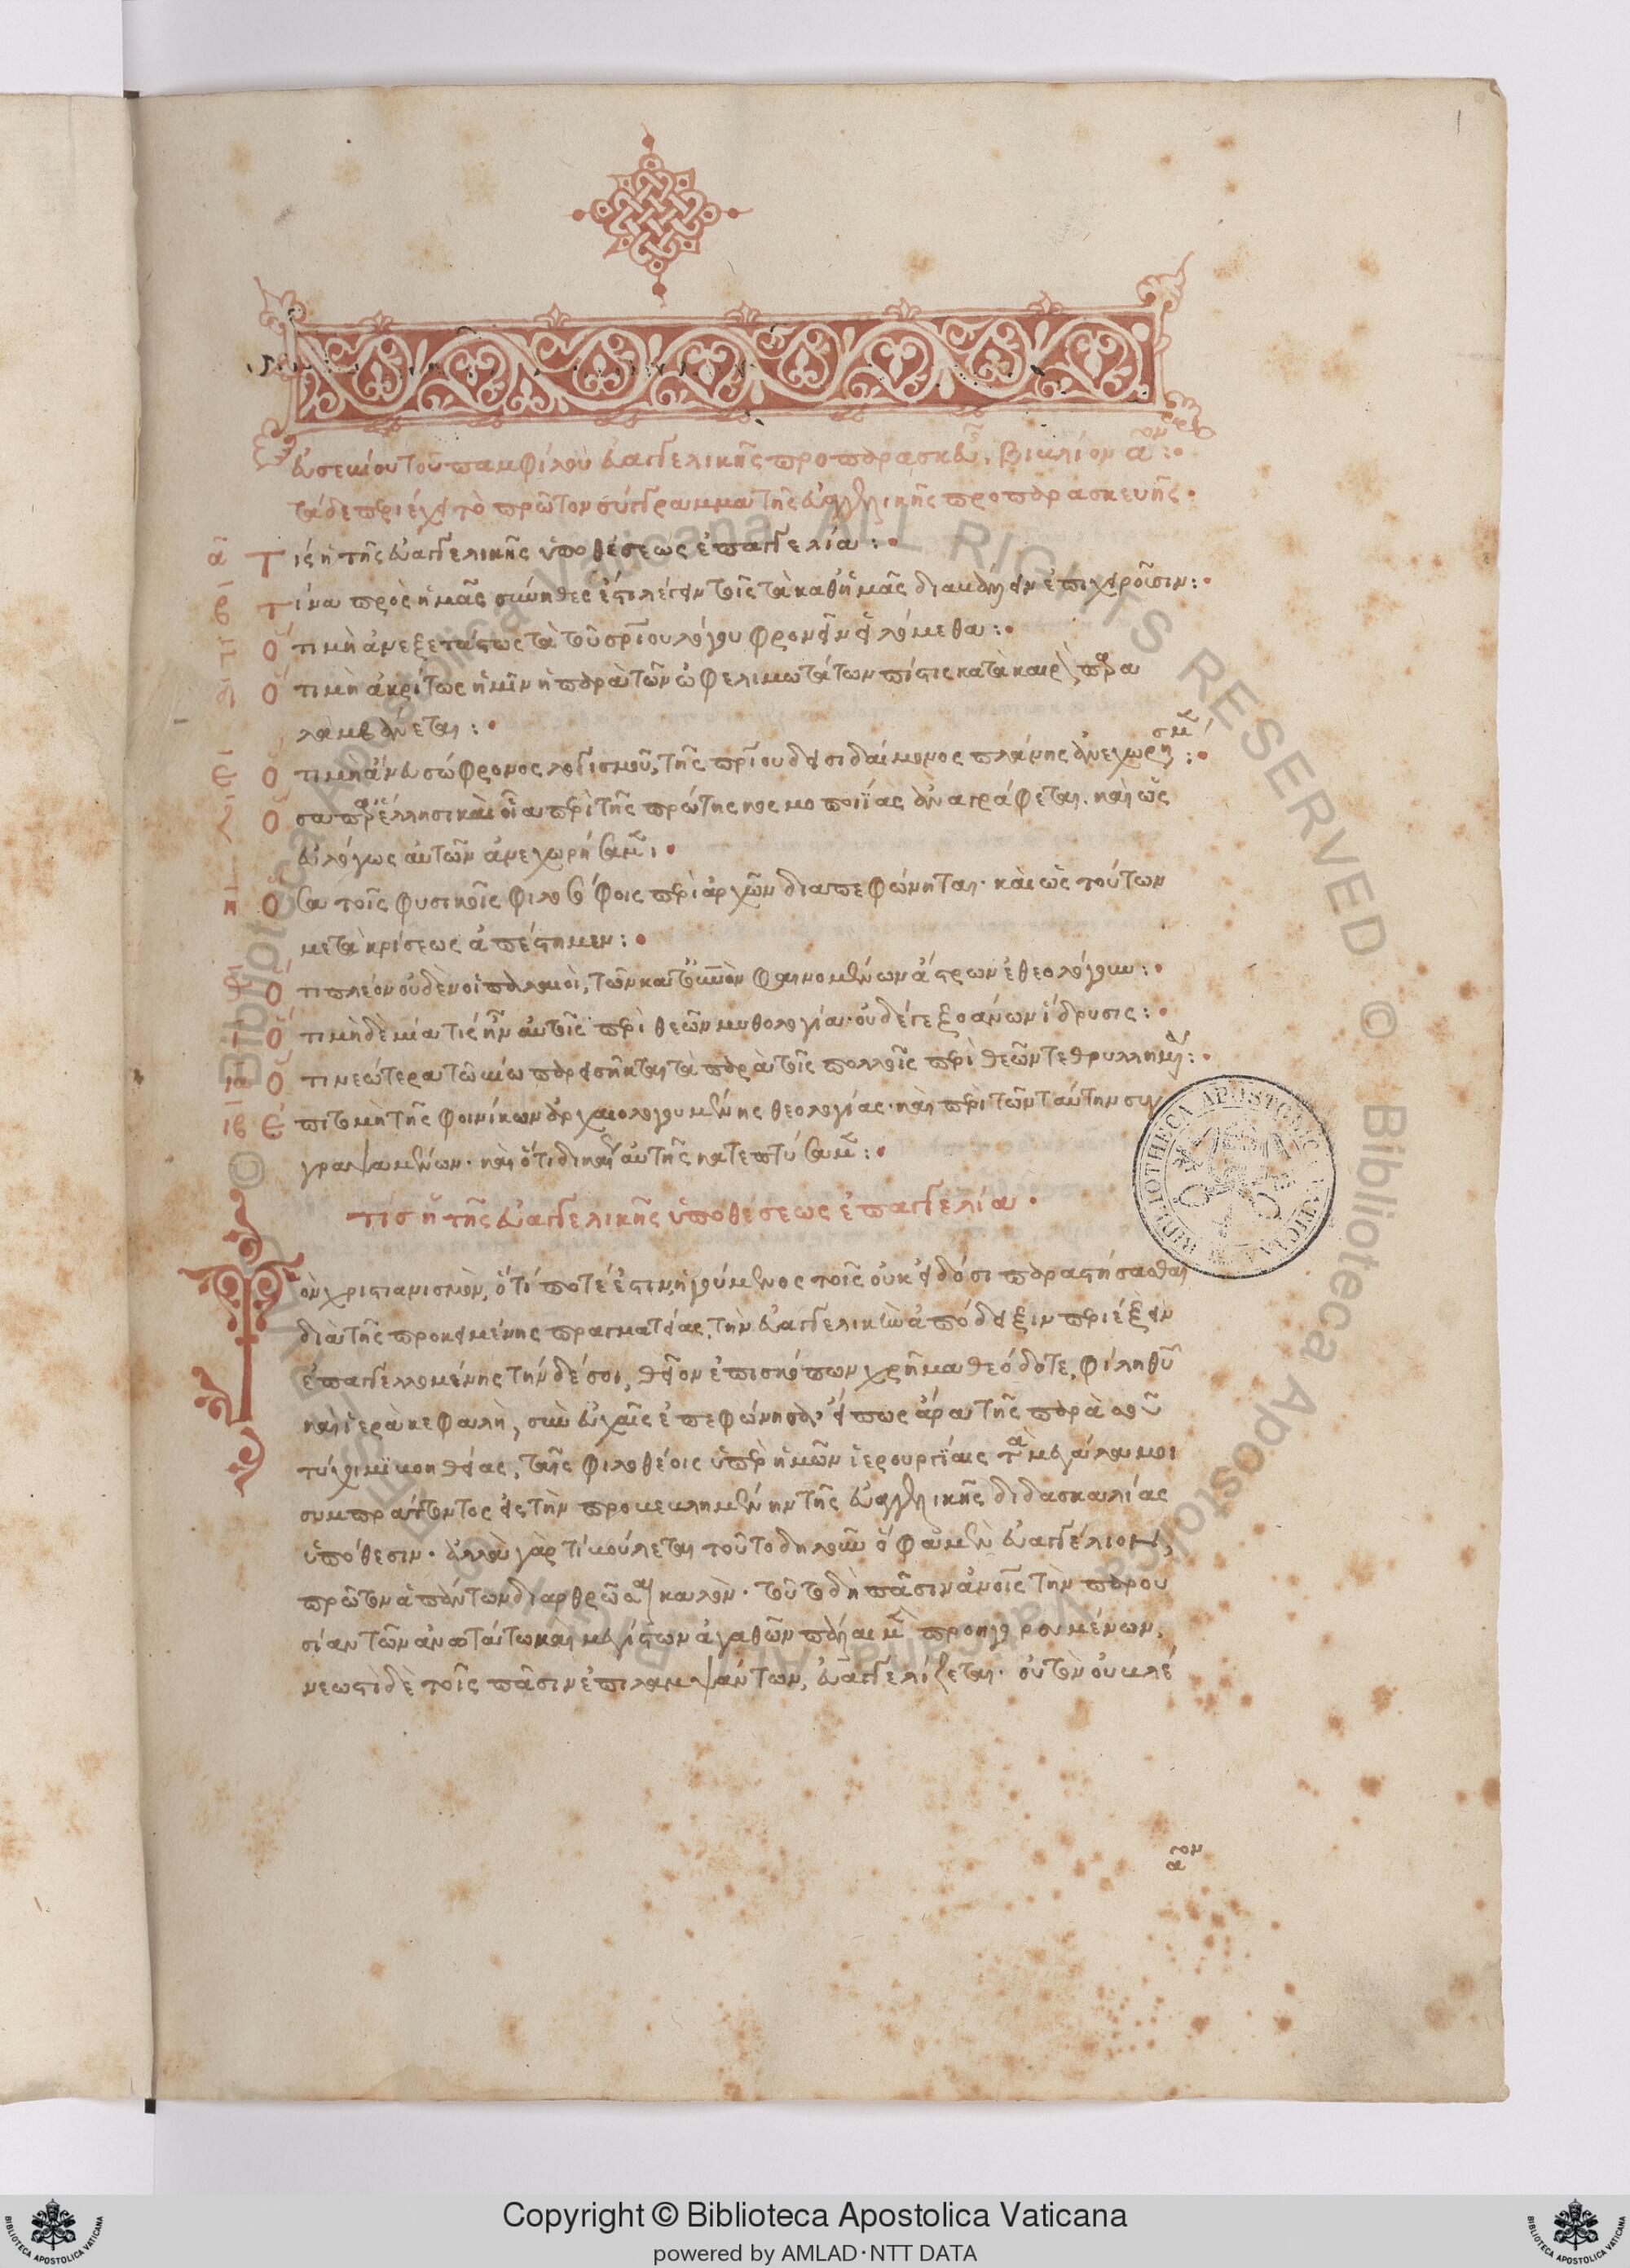 1
εὐσεβίου τοῦ παμφίλου εὐαγγελικῆς προπαρασκευῆς, βιβλίον αον :·
τάδε περιέχει τὸ πρῶτον σύγγραμμα τῆς εὐαγγελικῆς προπαρασκευῆς ·
α Τίς ἡ τῆς εὐαγγελικῆς ὑποθέσεως ἐπαγγελία :·
β Τίνα πρὸς ἡμᾶς σύνηθες ἐστὶ λέγειν τοῖς τὰ καθ' ἡμᾶς διαβάλλειν ἐπιχειροῦσιν :·
γ Ὅτι μὴ ἀνεξετάστως τὰ τοῦ σρίου λόγου φρονεῖν εἱλόμεθα :·
δ Ὅτι μὴ ἀκρίτως ἡμῖν ἡ παρὰ τῶν ὠφελιμωτάτων πίστις κατὰ καιρὸν παρα
λαμβάνεται :·
ε Ὅτι μὴ ἄνευ σώφρονος λογισμοῦ, τῆς πρίου δεισιδαίμονος πλάνης ἀνεχωρήσαμεν :·
Ὅσα παρ' ἕλλησι καὶ οἷα περὶ τῆς πρώτης κοσμοποιΐας ἀναγράφεται. καὶ ὡς
εὐλόγως αὐτῶν ἀνεχωρήσαμεν :·
η Ὅσα τοῖς φυσικοῖς φιλοσόφοις περὶ ἀρχῶν διαπεφώνηται · καὶ ὡς τούτων
μετὰ κρίσεως ἀπέστημεν :·
θ Ὅτι πλέον οὐδὲν οἱ παλαιοὶ, τῶν κατ' οὐνὸν φαινομένων ἄστρων ἐθεολόγουν :·
ι Ὅτι μὴδὲ μία τίς ἦν αὐτοῖς περὶ θεῶν μυθολογία · οὐδέ γε ξοάνων ἵδρυσις :·
ια Ὅτι νεώτερα τῶ βίω παρεισῆκται τὰ παρὰ τοῖς πολλοῖς περὶ θεῶν τεθρυλλημένα :·
ιβ Ἐπιτομὴ τῆς φοινίκων ἀρχαιολογουμένης θεολογίας · καὶ περὶ τῶν ταύτην συγ
γραψαμένων · καὶ ὅτι δικαίως αὐτῆς κατεπτύσαμεν :·
τίς ἡ τῆς εὐαγγελικῆς ὑποθέσεως ἐπαγγελία ·
Τὸν χριστιανισμὸν, ὅ τί ποτέ ἐστιν, ἡγούμενος τοῖς οὐκ εἰδόσι παραστήσασθαι
διὰ τῆς προκειμένης πραγματείας, τὴν εὐαγγελικὴν ἀπόδειξιν περιέξειν
ἐπαγγελλομένης τήνδε σοι, θεῖον ἐπισκόπων χρῆμα θεόδοτε, φίλη θῦ
καὶ ἱερὰ κεφαλὴ, σὺν εὐχαῖς ἐπεφώνησα, εἴ πως ἄρα τῆς παρὰ θῦ
τύχοιμι βοηθείας, ταῖς φιλοθέοις ὑπὲρ ἡμῶν ἱερουργίαις τὰ μεγάλα μοι
συμπράττοντος εἰς τὴν προβεβλημένην τῆς εὐαγγελικῆς διδασκαλίας
ὑπόθεσιν · ἀλλὰ γὰρ τί βούλεται τοῦτο δηλοῦν ὅ φαμεν εὐαγγέλιον,
πρῶτον ἁπάντων διαρθρῶσαι καλὸν · τοῦτο δὴ πᾶσιν ἀνοῖς τὴν παρου
σίαν τῶν ἀνωτάτω καὶ μεγίστων ἀγαθῶν πάλαι μὲν προηγορευμένων,
νεωστὶ δὲ τοῖς πᾶσιν ἐπιλαμψάντων, εὐαγγελίζεται · οὐ τὸν οὐ βλέ
αον
BIBLIOTHECA APOSTOLICA VATICANA
© Biblioteca Apostolica Vaticana ALL RIGHTS RESERVED © Biblioteca Apostolica Vaticana ALL RIGHTS RESERVED
Copyright © Biblioteca Apostolica Vaticana
powered by AMLAD·NTT DATA
BIBLIOTECA APOSTOLICA VATICANA
BIBLIOTECA APOSTOLICA VATICANA